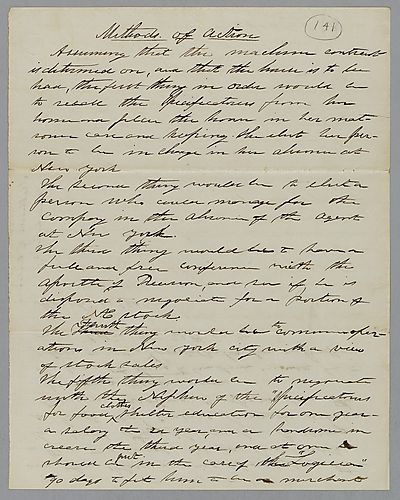 141
Methods of Action
Assuming that the machine contract
is determined on, and that the house is to be
had, the first thing in order would be
to recall the Specificatress from her
home and place the house in her mat
ronly care and keeping. She elect her per-
son to be in charge in her absence at
New York
The second thing would be to elect a
person who could manage for the
Company in the absence of the agent
at New York.
The third thing would be to have a
full and free conference with the
apostle of Precision, and see if he is
disposed to negotiate for a portion of
the stock
The Fourth thing would be to commence oper-
ations in New York city with a view
of stock sales
The fifth thing would be to negotiate
with the Nephew of the Specificatress
for food, clothes, shelter education for one year
a salary the 2d year, and a handsome in
crease the third year, and at once
should be put in the care of the "Logician"
90 days to fit him to be a merchant